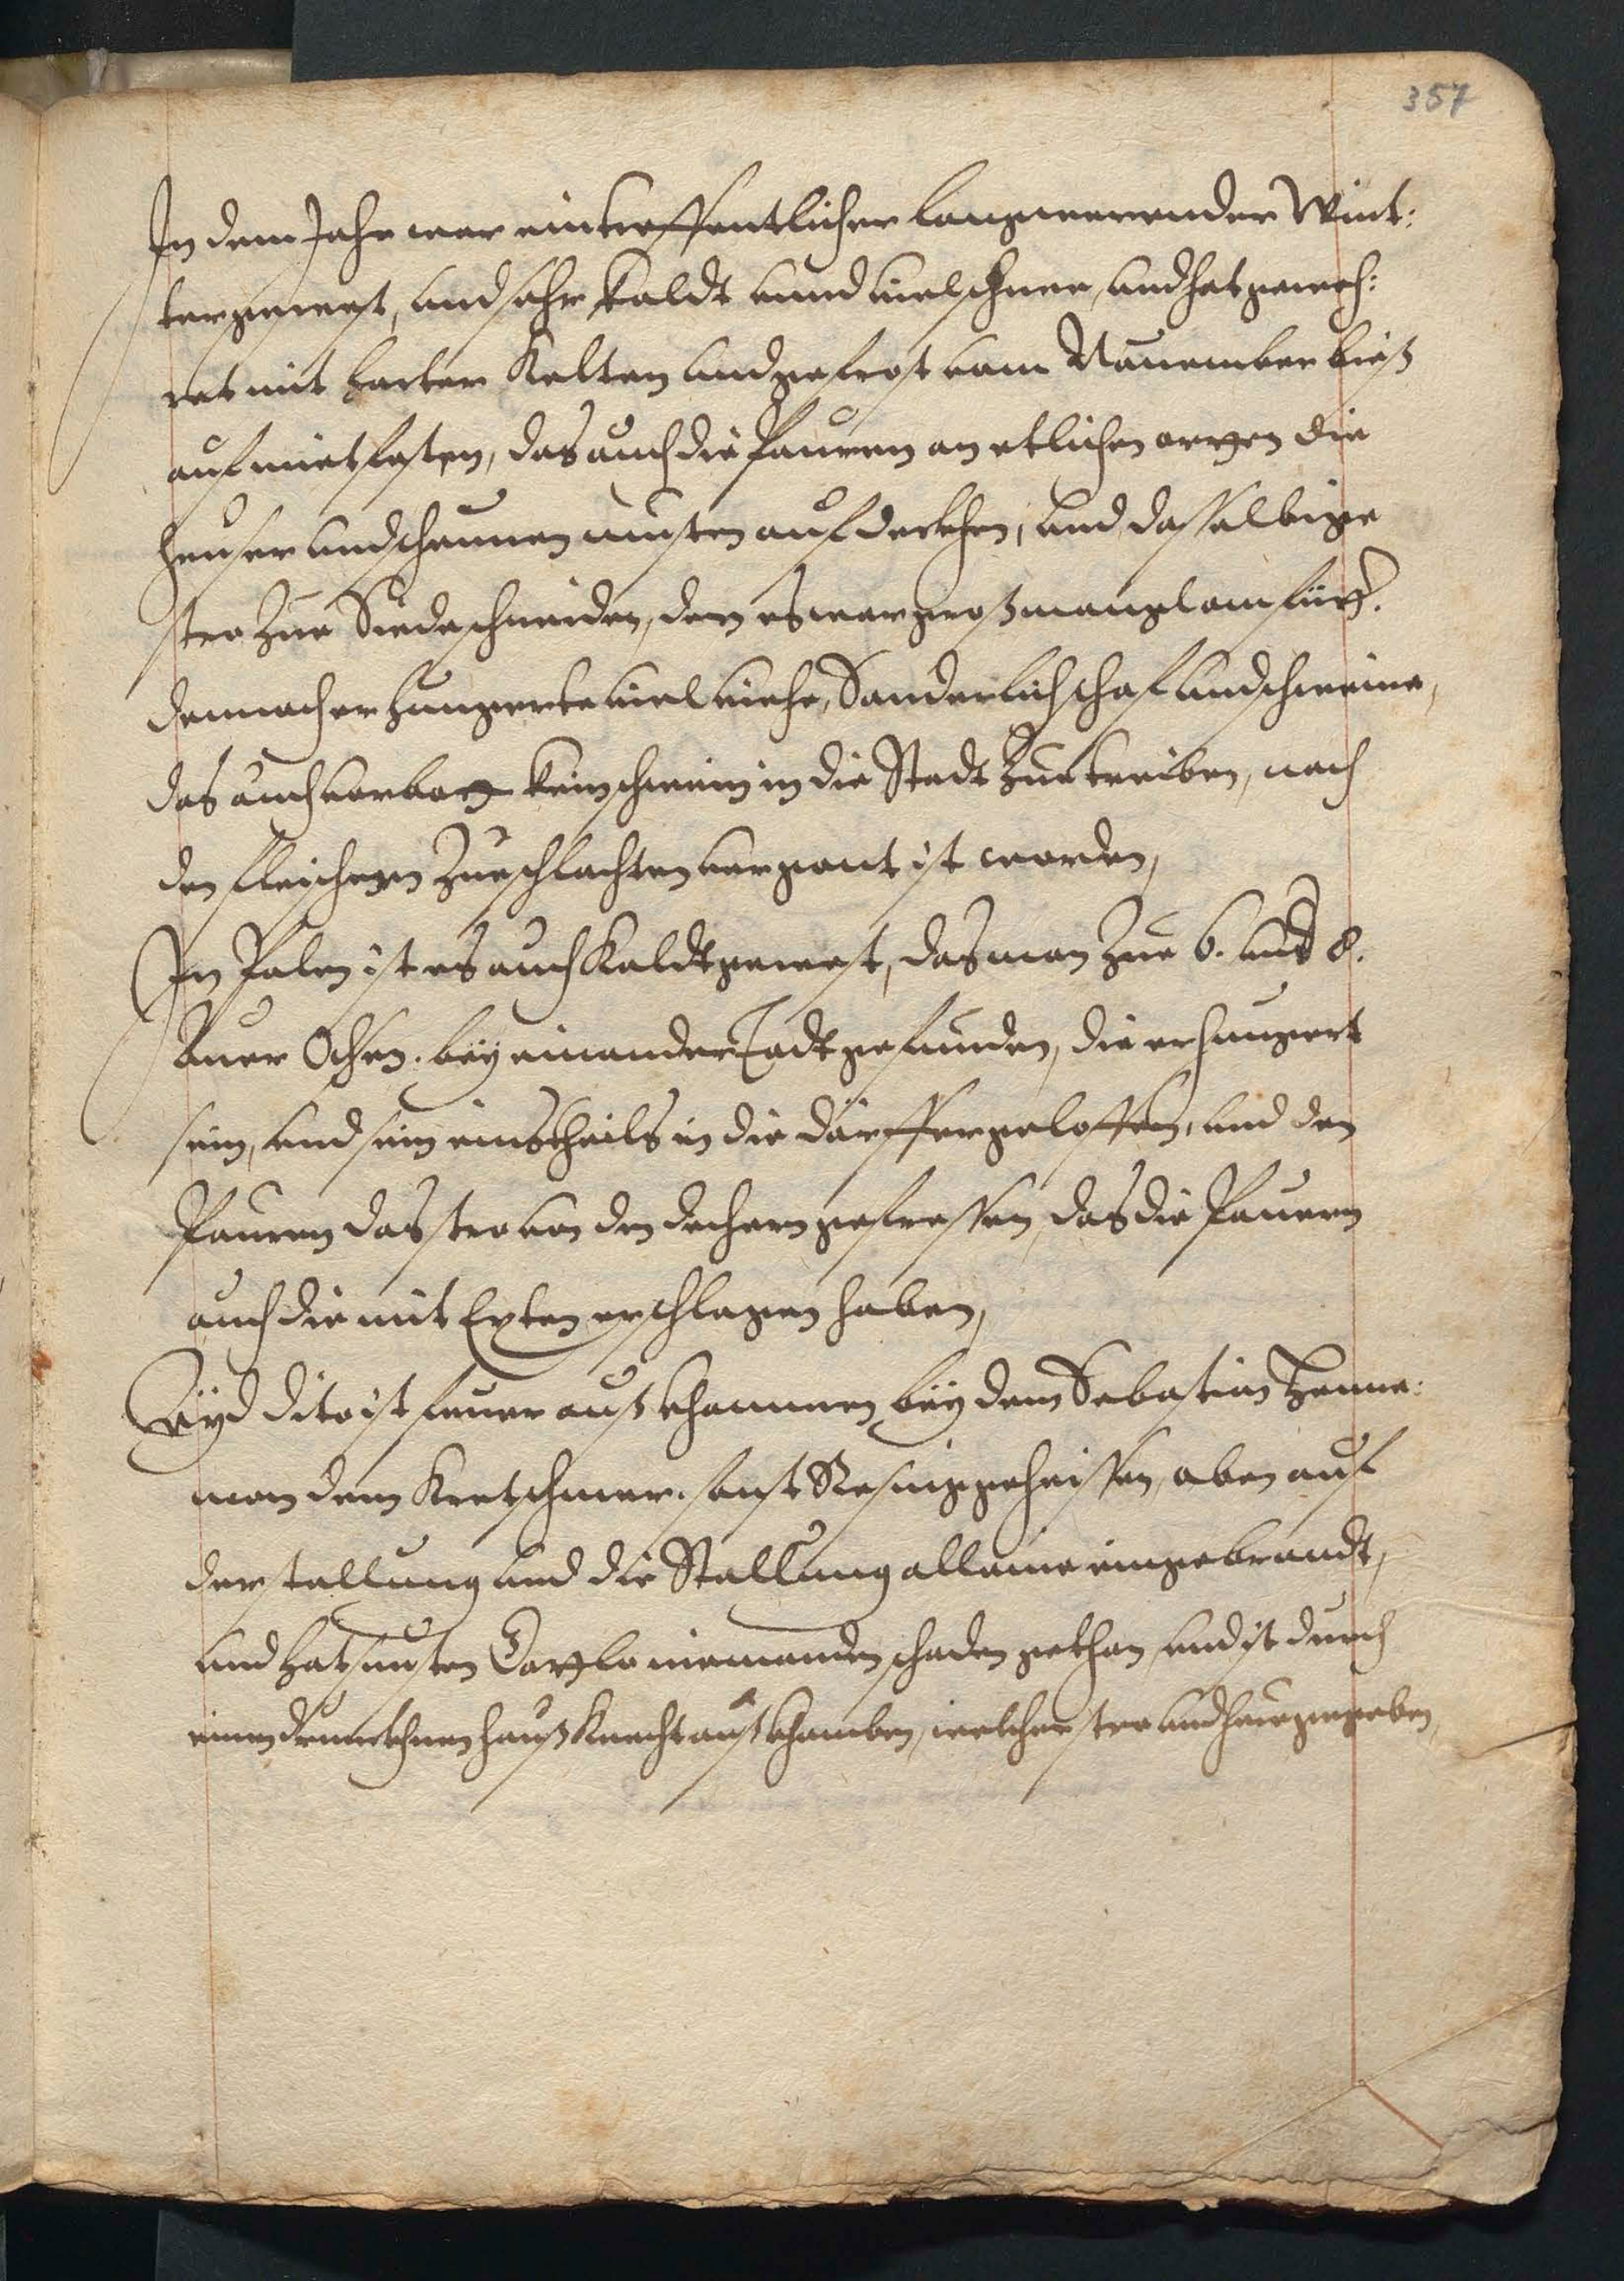 357
In dem Jahr war ein treffentlicher langwerender Wint:
ter gewest, und sehr kaldt unnd viel schnee, und hat geweh:
ret mit harter Kelten und gefrost vom Nauember bieß
auf mitfasten, das auch die Pauren an etlichen orten die
heuser und scheunen musten aufdeckhen, und dasselbige
stro zue Siede schneiden, den es war groß mangl am
dennoch erhungerte viel viehe, Sonderlich schaf und schweine,
das auch verbott kein schwein in die Stadt zue treiben, noch
den fleischern zue schlachten vergont ist worden,
In Polen ist es auch kaldt gewest, das man zue 6. und 8.
Auer Ochsen. bey einander Todt gefunden, die erhungert
sein, und sein einstheils in die dörffer geloffen, und den
Pauren das stro von den dechern gefressen, das die Pauren
auch die mit Exten erschlagen haben,
dito ist feuer auß khommen bey dem Sebastian
man dem Kretschmer. sonst geheissen, oben auf
der stallung und die Stallung alleine eingebrandt,
und hat sunsten niemanden schaden gethan, und ist durch
einen drunckhnen hauß knecht auß khomben, welcher stro und heue gegeben,